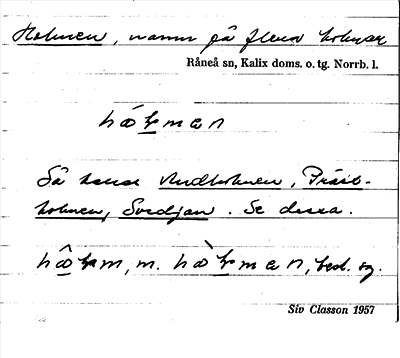 Holmen, namn på flera holmar
Råneå sn, Kalix doms. o. tg. Norrb. l.
Så kallas Rudholmen, Präst-
holmen, Svedjan. Se dessa.
m. best. sg.
Siv Classon 1957